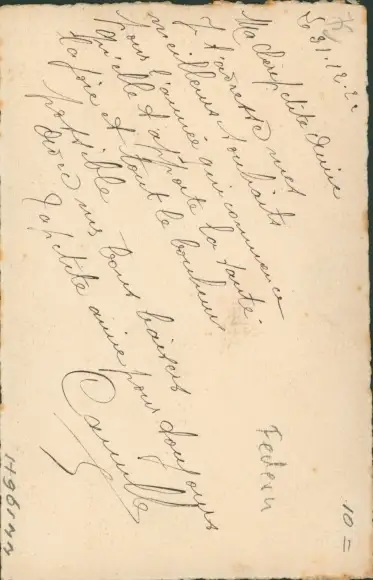 le 31.12.21
Ma chère petite amie
Je t'adresse mes
meilleurs souhaits
pour l'année qui commence
qu'elle t'apporte la santé.
la joie et tout le bonheur
possible
Avec mes bons baisers
Ta petite amie pour toujours
Camille
Federn
10 =